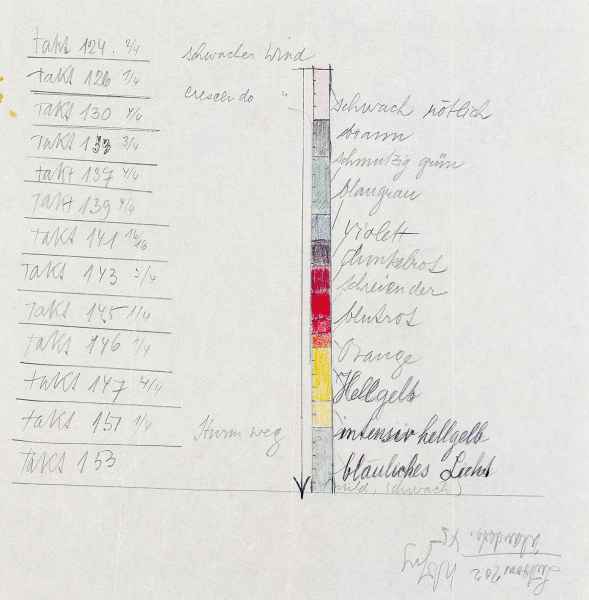 takt 124. 2/4
schwacher Wind
takt 126 3/4
crescendo "
takt 130 4/4
schwach rötlich
takt 133 3/4
braun
schmutzig grün
takt 137 4/4
blaugrau
takt 139 4/4
takt 141
violett
dunkelrot
takt 143
schreiender
takt 145
blutrot
takt 146
Orange
takt 147 4/4
Hellgelb
takt 151
Sturm weg
intensiv hellgelb
takt 153
bläuliches Licht
mild, schwach)